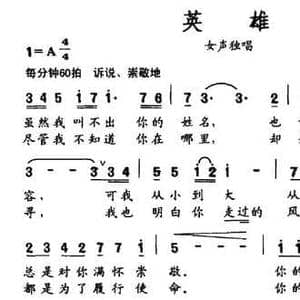 英 雄
女声独唱
1=A 4/4
每分钟60拍 诉说、崇敬地
3 4 5 i 7 i· 7 6 | 7 3· 3· 2
虽然我叫不出 你的 姓名, 也
尽管我不知道 你在 哪里, 却
3 - 3 3 3 4 | 5· 5 5 4 5 i 2 | i - ·7
容, 可我 从小到大 从
寻, 我也 明白你走过的 风
2 3 4 2 7 6 7 i | i - - -
总是对你满怀崇 敬。 你的
都是为了履行使 命。 你的